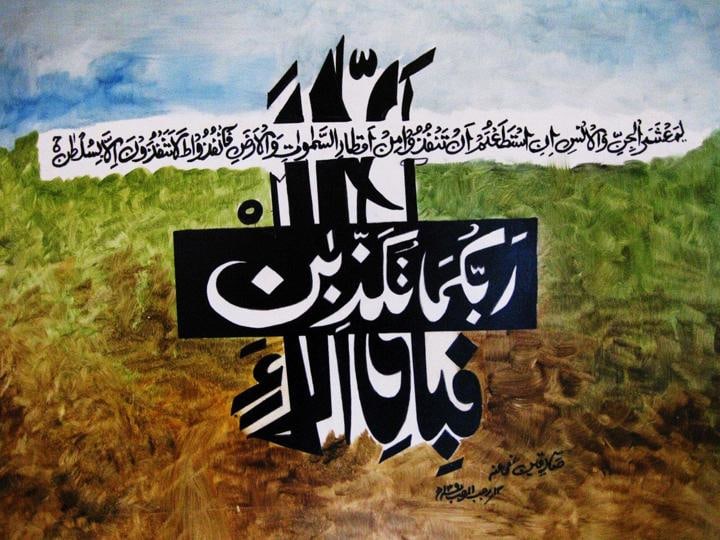 يمَعْشَرَ الْجِنِّ وَالْاِنْسِ اِنِ اسْتَطَعْتُمْ اَنْ تَنْفُذُوْا مِنْ اَقْطَارِ السَّمٰوٰتِ وَالْاَرْضِ فَانْفُذُوْا ط لَا تَنْفُذُوْنَ اِلَّا بِسُلْطٰنٍ ه
فَبِاَىِّ اٰلَاۤءِ
رَبِّكُمَا تُكَذِّبٰنِ ه
صادقین عفی عنہ